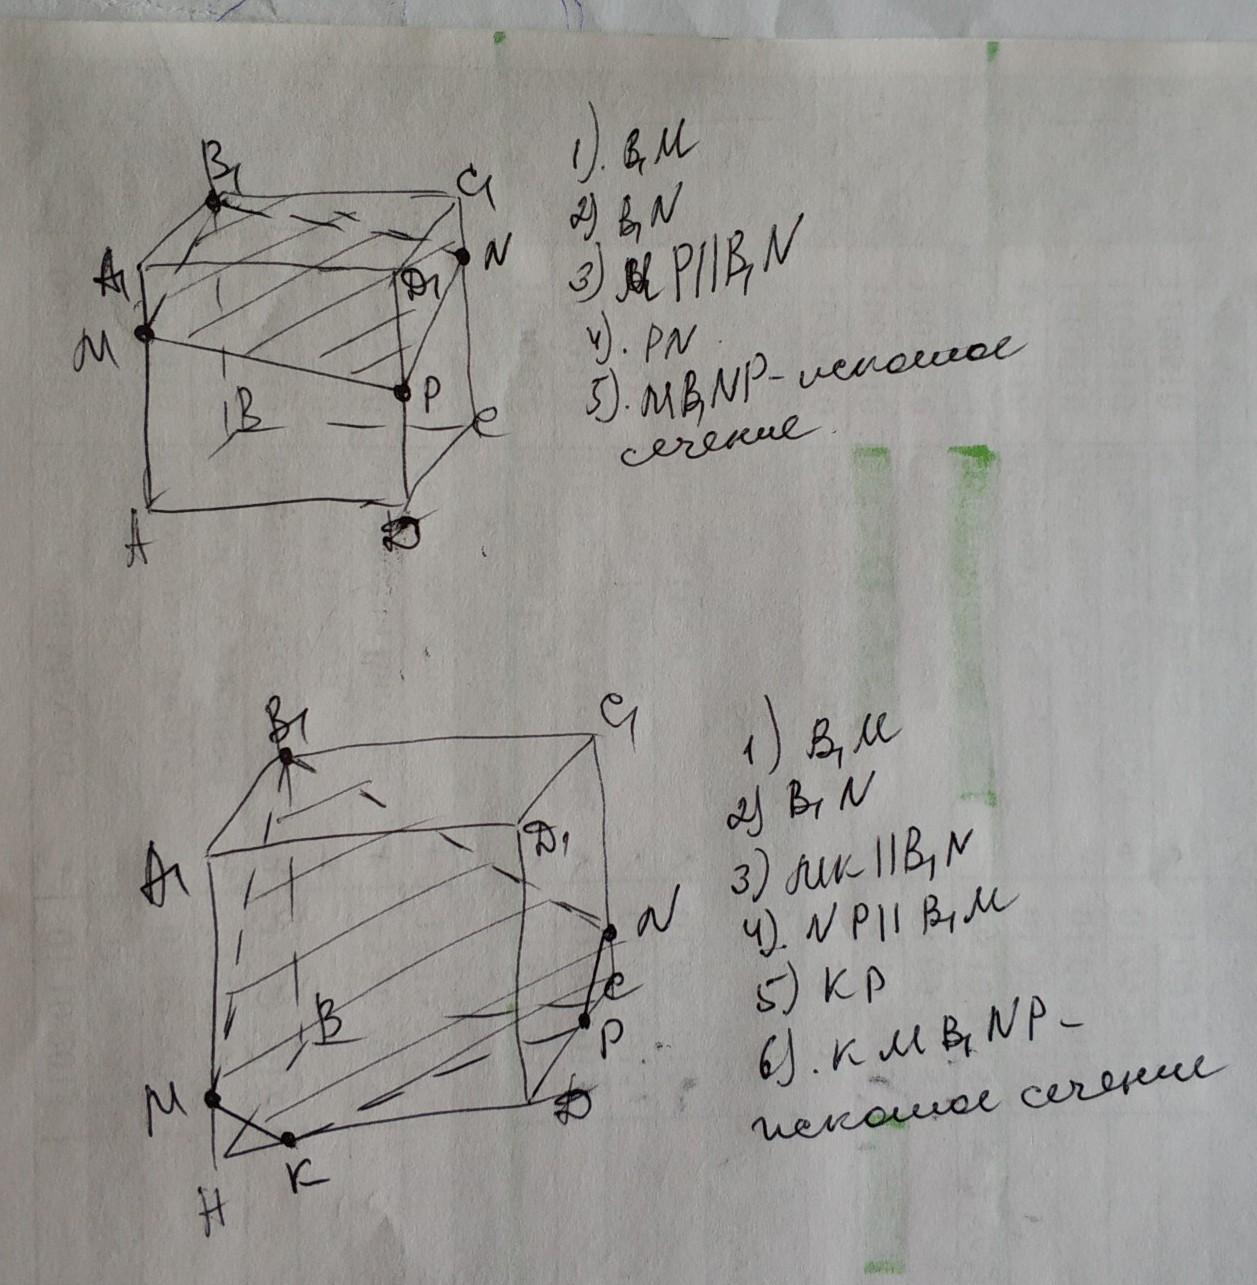 B₁
C₁
A₁
D₁
N
M
P
B
C
A
D
1). B₁M
2) B₁N
3) MP||B₁N
4). PN
5). MB₁NP- искомое
сечение.
B₁
C₁
A₁
D₁
N
B
C
P
M
D
K
A
1) B₁M
2) B₁N
3) MK||B₁N
4). NP||B₁M
5) KP
6). KMB₁NP-
искомое сечение